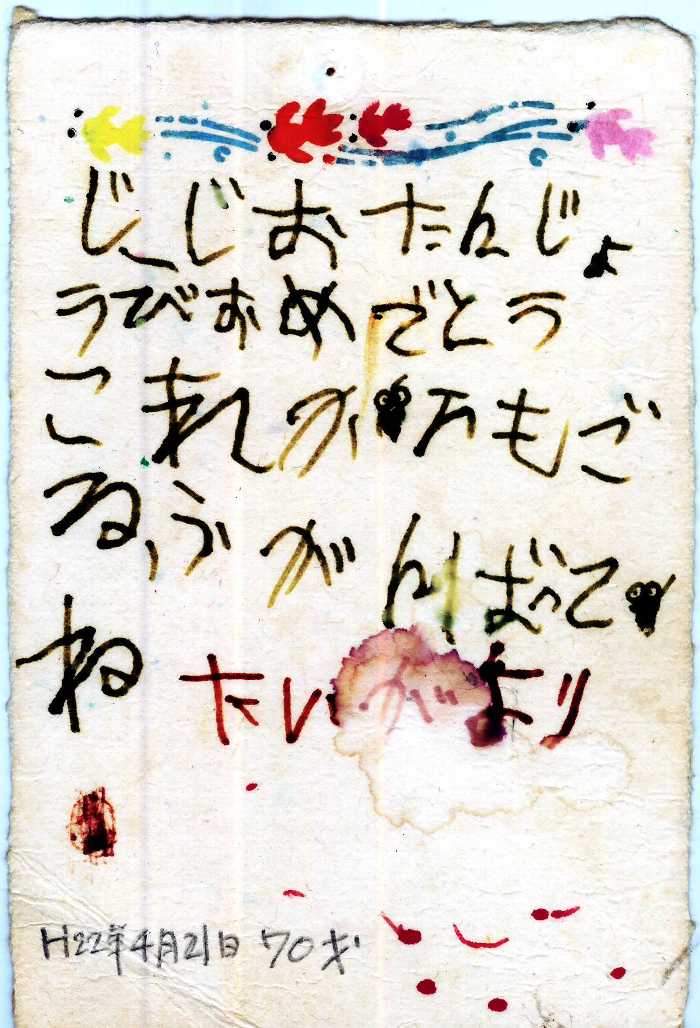 じーじおたんじょ
うびおめでとう
これからもご
るふがんばって
ね たいがより
H22年4月21日 70才